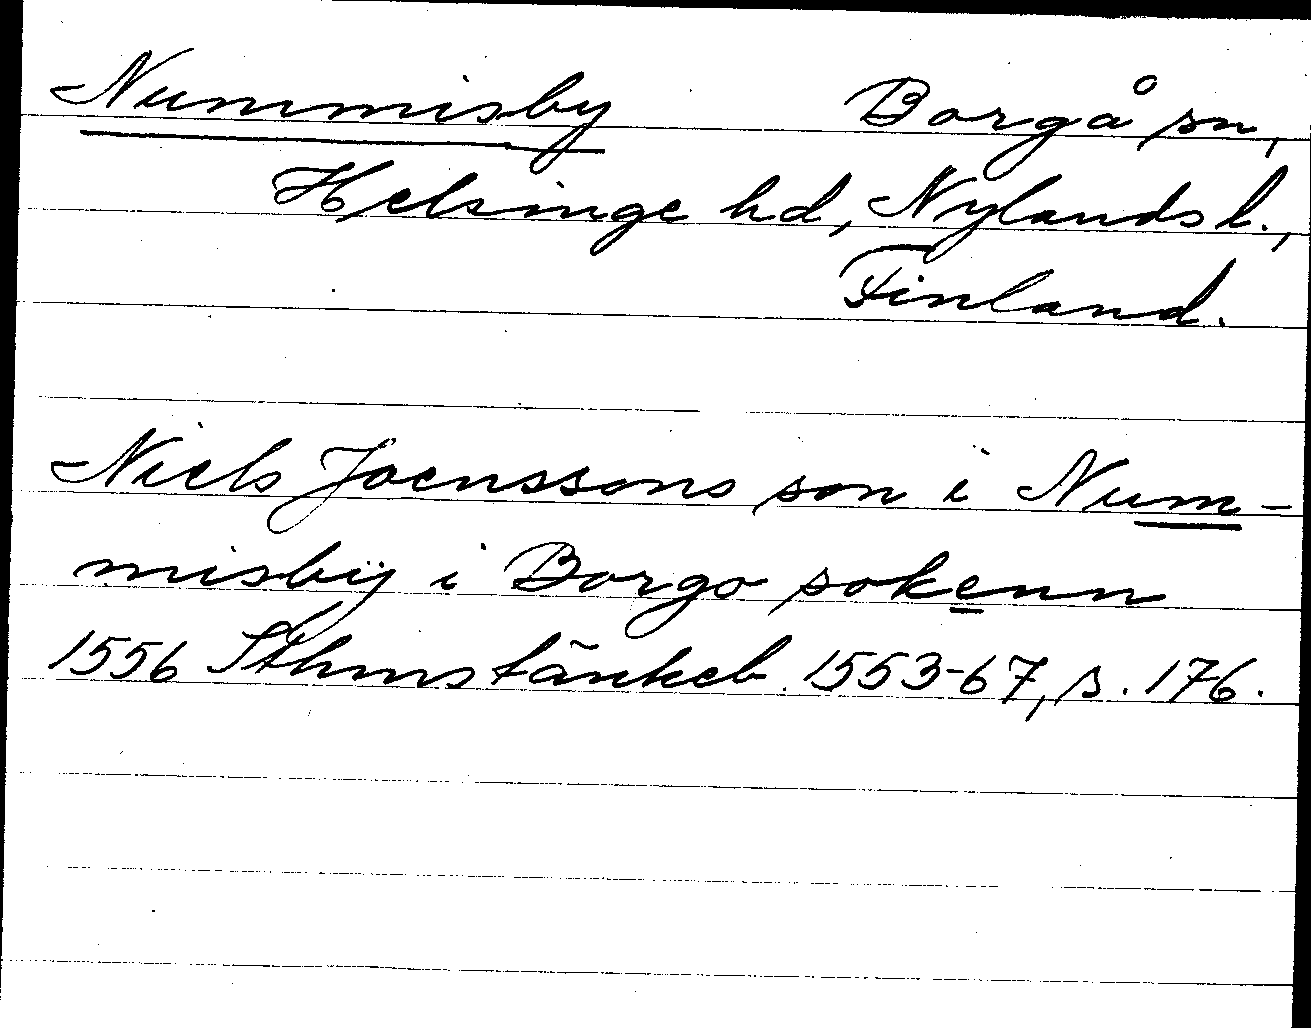 Nummisby Borgå sn,
Helsinge hd, Nylands l.,
Finland.
Niels Joenssons son i Num-
misbÿ i Borgo sokenn
1556 Sthms tänkeb. 1553-67, s. 176.